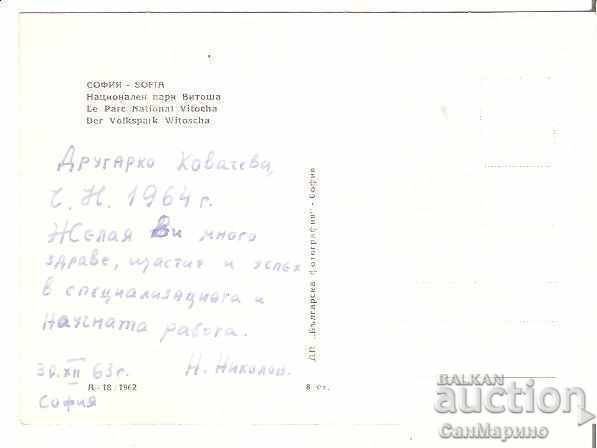 СОФИЯ - SOFIA
Национален парк Витоша
Le Parc National Vitocha
Der Volkspark Witoscha
Другарко Ковачева,
Ч. Н. 1964 г.
Желая Ви много
здраве, щастие и успех
в специализацията и
научната работа.
30.XII 63 г.
Н. Николов.
София
Д - 18 / 1962
8 Ст.
ДП „Българска фотография" - София
BALKAN
auction
СанМарино